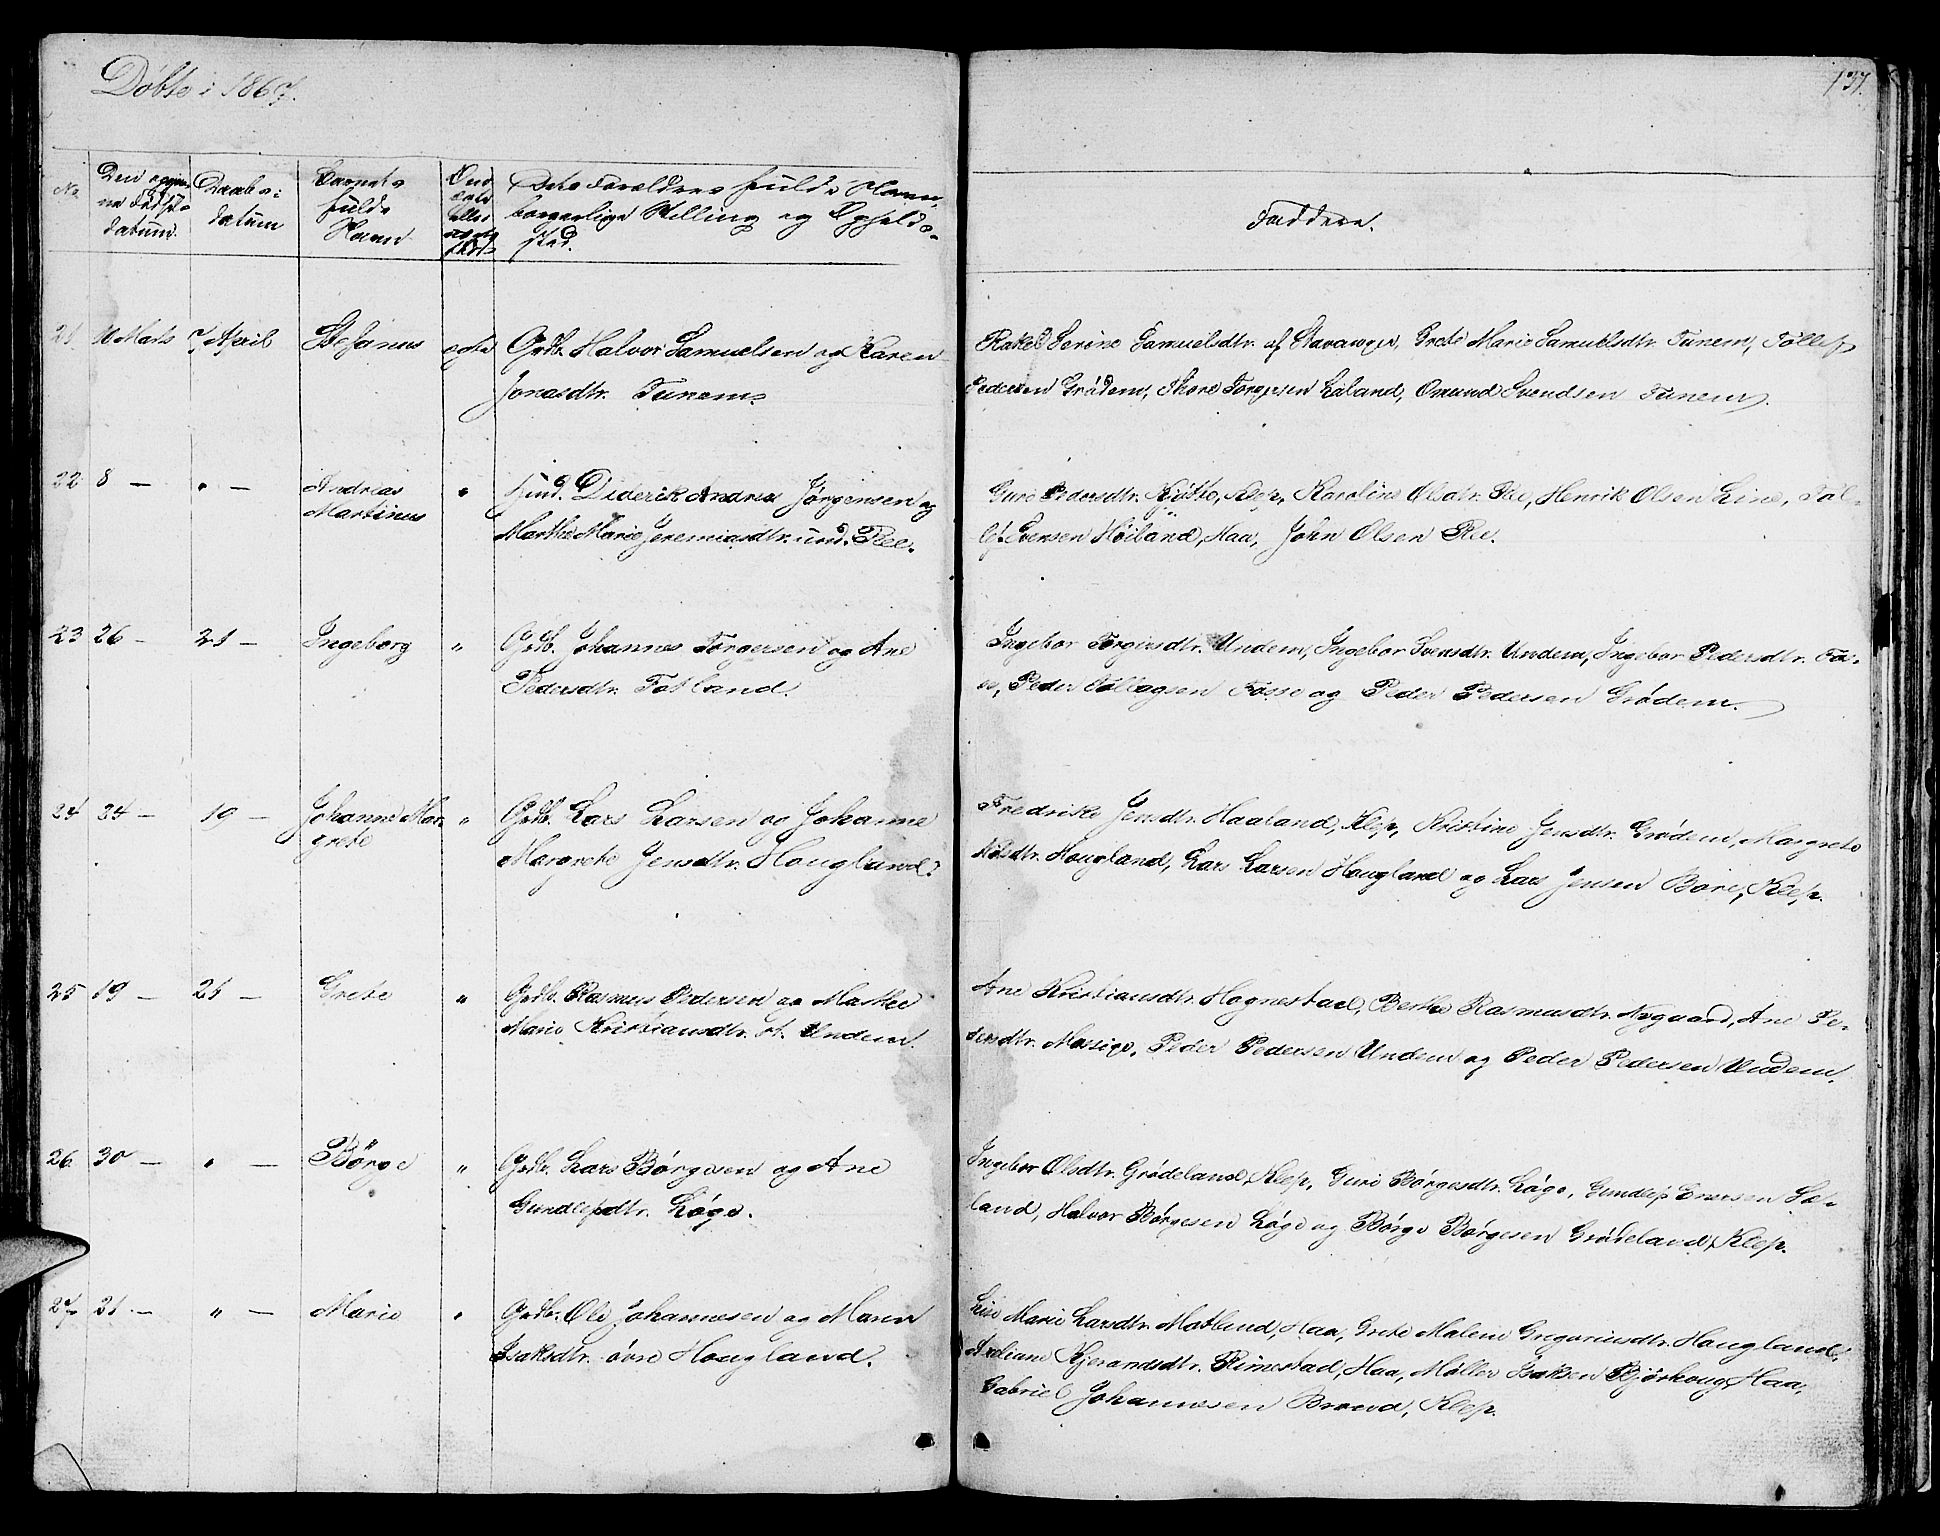 Døbte i 1867.
137.
No. Den opgivne Fødselsdatum. Daabsdatum Barnets fulde Navn Om ægte eller uægte født Dets Forældres fulde Navn, borgerlige Stilling og Opholdssted.
Faddere.
21 10 Marts 7 April Stefanus ægte Grdb. Halvor Samuelsen og Karen
Jonasdtr. Tunem.
Rakel Serine Samuelsdtr. af Stavanger, Grete Marie Samuelsdtr. Tunem, Tollef
Pedersen Grødem, Thore Torgersen Laland, Omund Svendsen Tunem.
22 8 — " — Andreas
Martinus " Hmd. Diderik Andreas Jørgensen og
Marthe Marie Jeremiasdtr. und. Ree.
Guro Pedersdtr. Klep, Karoline Olsdtr. Ree, Henrik Olsen Line, Tol-
lef Evensen Høiland, Haa, John Olsen Ree.
23 26 — 21 — Ingeborg " Grdb. Johannes Torgersen og Ane
Pedersdtr. Fotland.
Ingebor Torgersdtr. Undem, Ingebor Svensdtr. Undem, Ingebor Pedersdtr. Fos-
se, Peder Tollagsen Fosse og Peder Pedersen Grødem.
24 24 — 19 — Johanne Mar-
grete " Grdb. Lars Larsen og Johanne
Margrete Jensdtr. Hougland.
Fredrike Jensdtr. Haaland, Klep, Kristine Jensdtr. Grødem, Margrete
Nilsdtr. Hougland, Lars Larsen Hougland og Lars Jensen Bore, Klep.
25 19 — 21 — Grete " Grdb. Rasmus Pedersen og Marthe
Marie Kristiansdtr. st. Undem.
Ane Kristiansdtr. Hognestad, Berthe Rasmusdtr. Nygaard, Ane Pe-
dersdtr. Mossige, Peder Pedersen Undem og Peder Pedersen Undem.
26 30 — " — Børge " Grdb. Lars Børgesen og Ane
Gundlefsdtr. Løge.
Ingebor Olsdtr. Grødeland, Klep, Guri Børgesdtr. Løge, Gundlef Enersen Sæ-
land, Halvor Børgesen Løge og Børge Børgesen Grødeland, Klep.
27 21 — " — Marie " Grdb. Ole Johannesen og Maren
Isaksdtr. øvre Hougland.
Line Marie Larsdtr. Motland, Haa, Grete Malene Gregoriusdtr. Hougland,
Kjerandsdtr. Rimestad, Haa, Møller Isaksen Bjørhoug, Haa,
Gabriel Johannesen Braud, Klep.